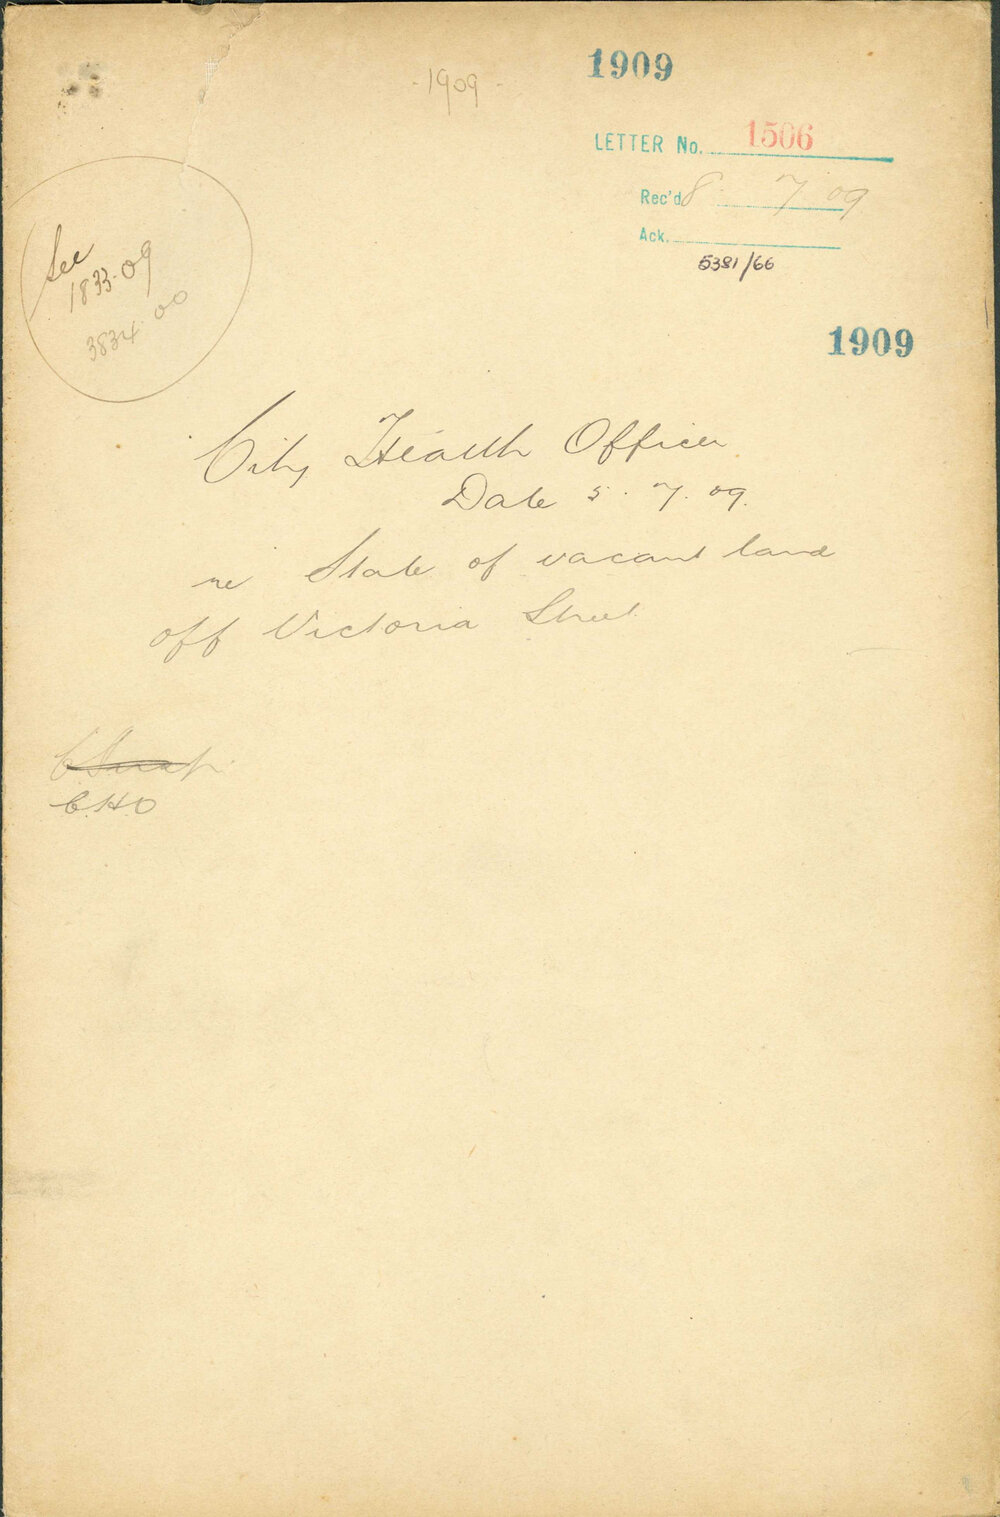 - 1909 -
1909
LETTER No. 1506
Rec'd 8 7 09
Ack.
5381/66
See
1833-09
3834 00
1909
City Health Officer
Date 5.7.09.
re State of vacant land
off Victoria Street
C.H.O